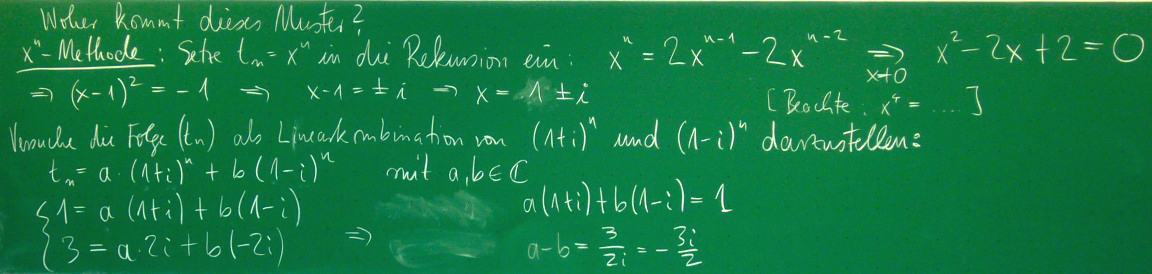 Woher kommt dieses Muster?
xⁿ-Methode: Setze tₙ = xⁿ in die Rekursion ein: xⁿ = 2xⁿ⁻¹ - 2xⁿ⁻² ⇒ x≠0 x² - 2x + 2 = 0
⇒ (x-1)² = -1 ⇒ x-1 = ±i ⇒ x = 1 ± i [Beachte: x⁴ = .....]
Versuche die Folge (tₙ) als Linearkombination von (1+i)ⁿ und (1-i)ⁿ darzustellen:
tₙ = a·(1+i)ⁿ + b(1-i)ⁿ mit a,b ∈ ℂ
{ 1 = a(1+i) + b(1-i) a(1+i) + b(1-i) = 1
3 = a·2i + b(-2i) ⇒ a-b = 3/2i = -3i/2